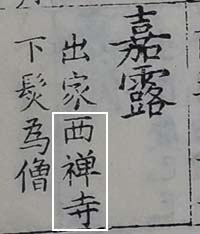 嘉露
出家西禅寺
下髮為僧